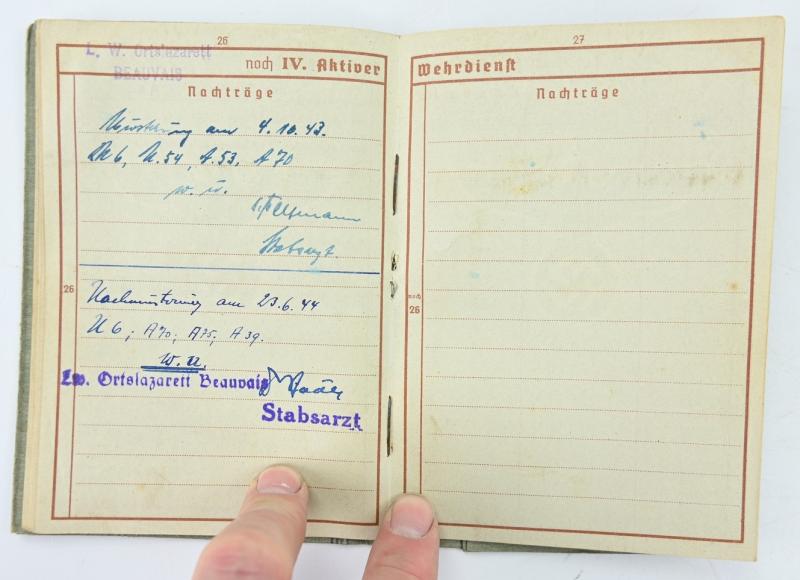 26
L. W. Ortslazarett
BEAUVAIS
noch IV. Aktiver
Nachträge
Musterung am 4.10.43.
A 70
w. u.
Stabsarzt.
26
Nachmusterung am 23.6.44
U 6; A 70; A 75; A 39.
w. u.
Lw. Ortslazarett Beauvais
Stabsarzt
27
Wehrdienst
Nachträge
noch
26